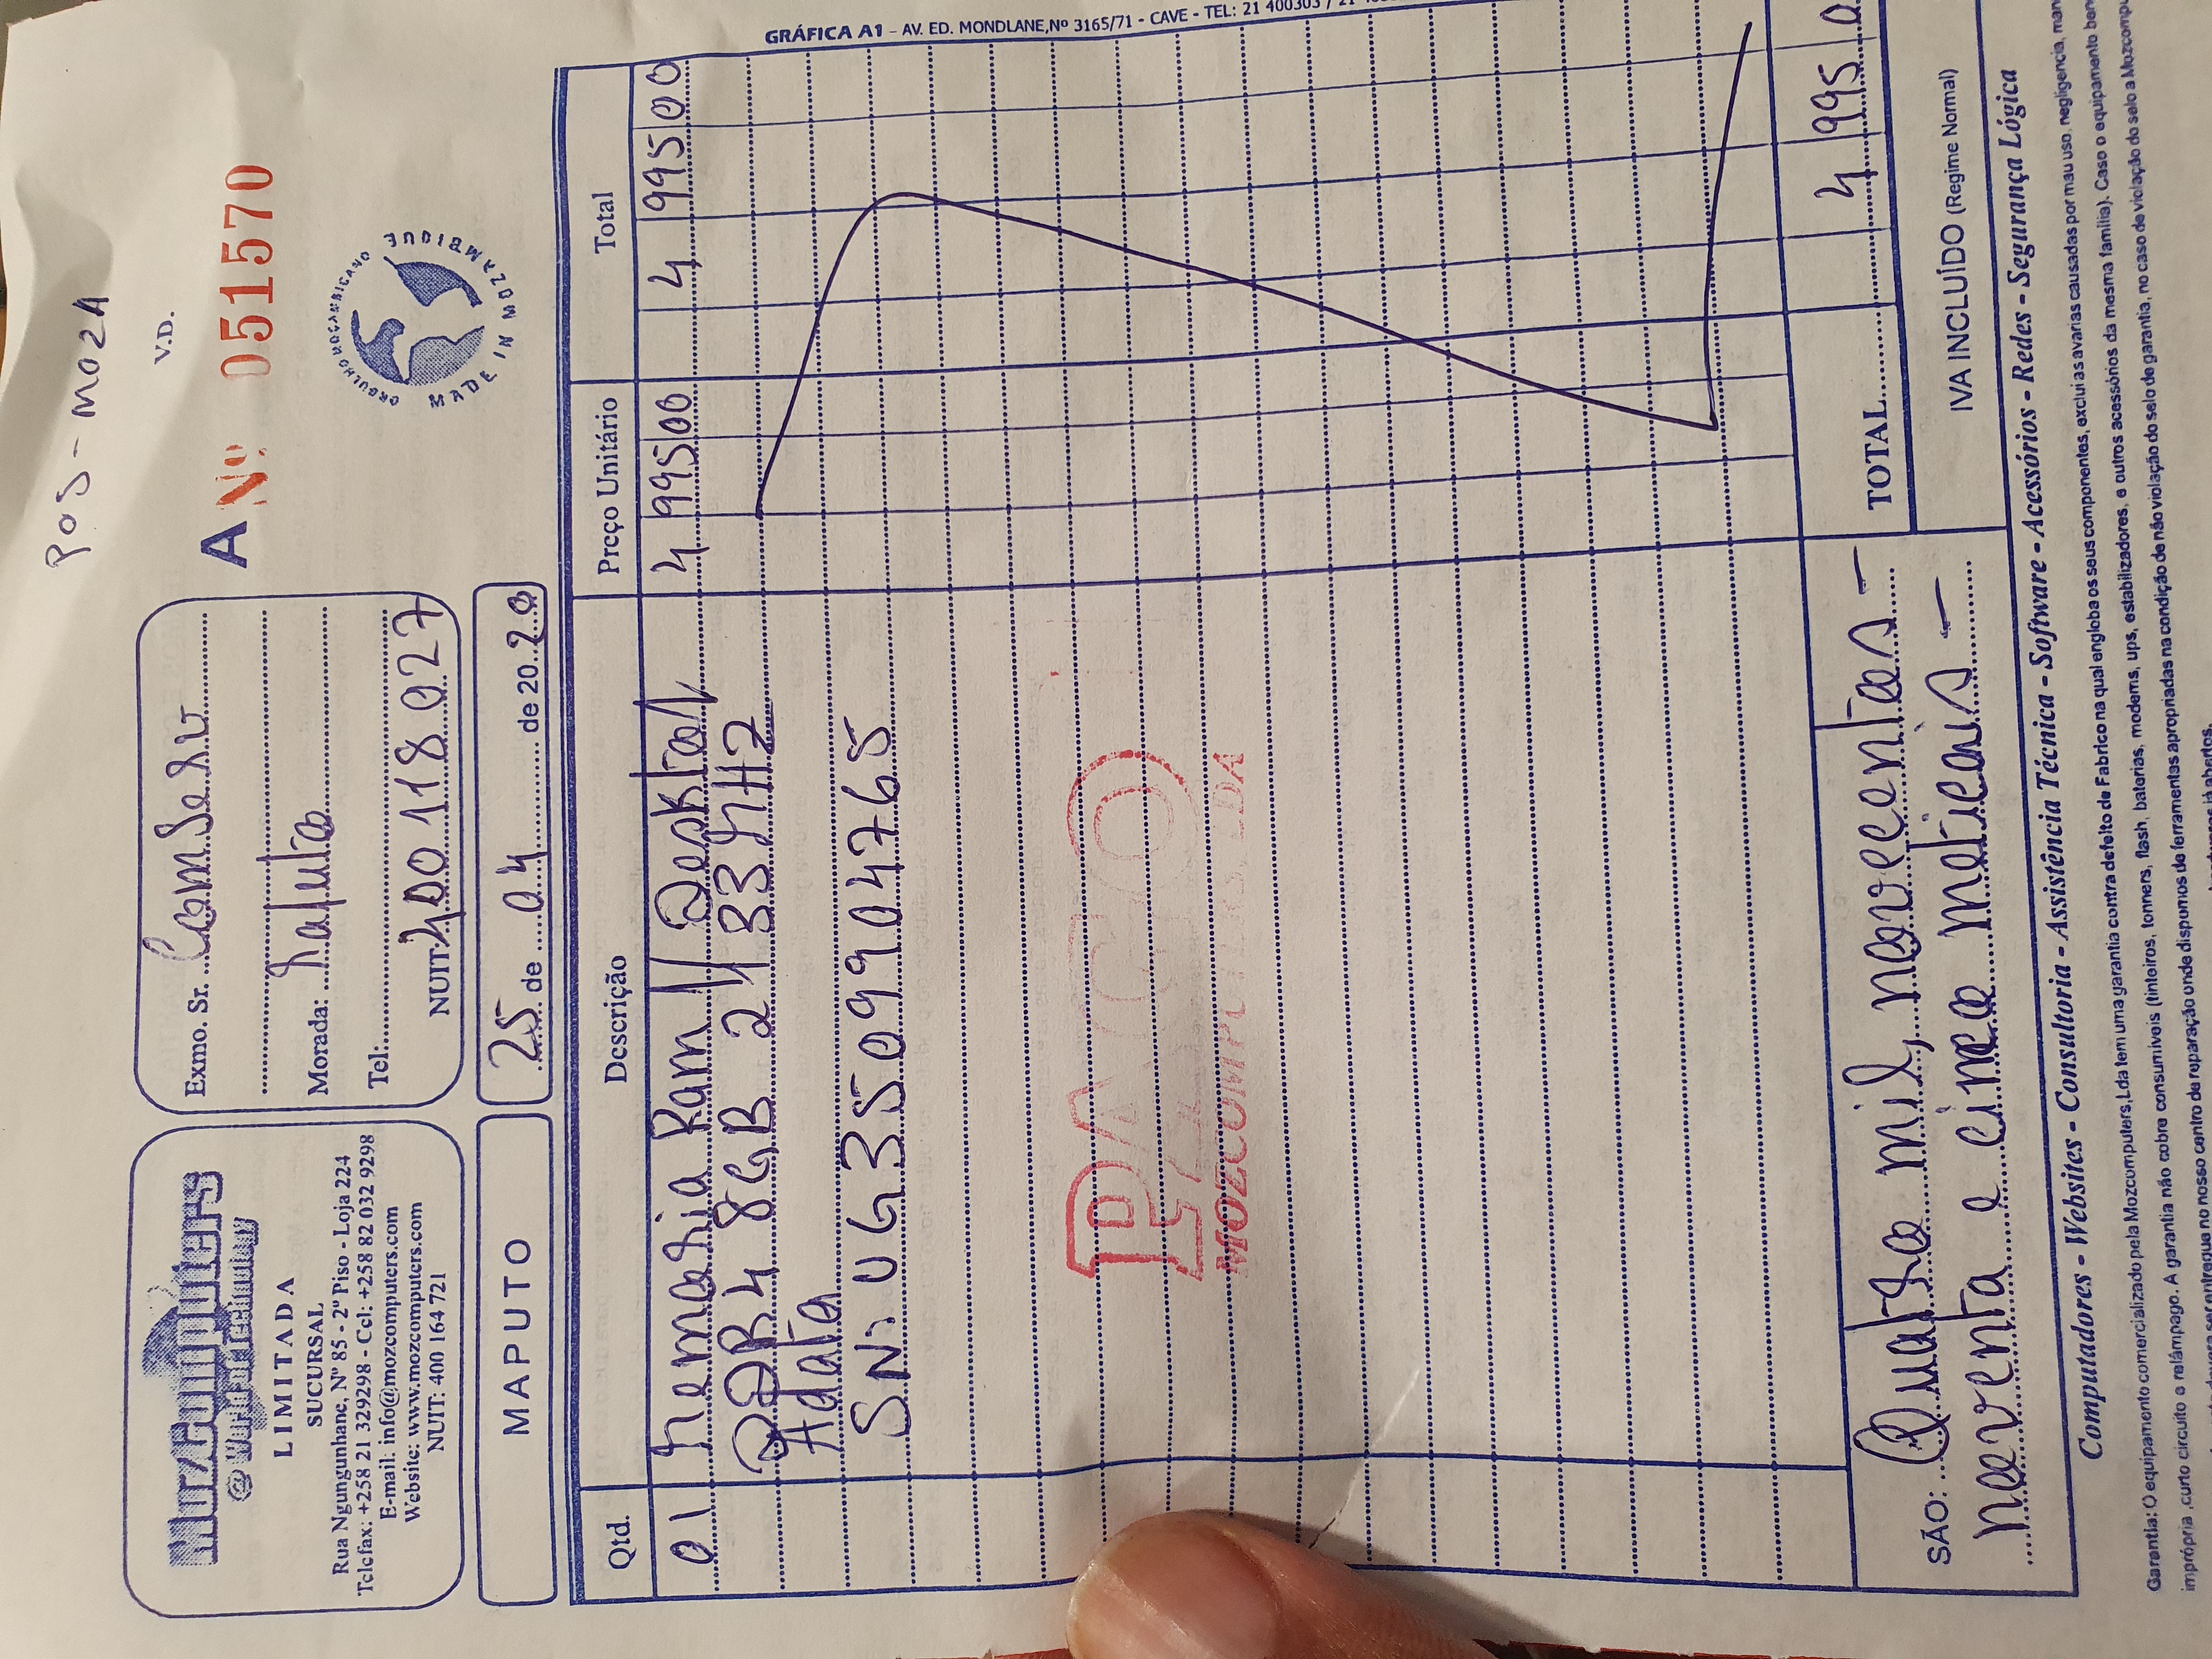 POS - MOZA
MozComputers
@ World of Technology
LIMITADA
SUCURSAL
Rua Ngungunhane, Nº 85 - 2º Piso - Loja 224
Telefax: +258 21 329298 - Cel: +258 82 032 9298
E-mail: info@mozcomputers.com
Website: www.mozcomputers.com
NUIT: 400 164 721
Exmo. Sr. ComServ
Morada: Maputo
Tel:
NUIT: 400 118 027
V.D.
A Nº 051570
ORGULHO MOÇAMBICANO
MADE IN MOZAMBIQUE
MAPUTO
25 de 04 de 2020
Qtd. Descrição Preço Unitário Total
01 Memoria Ram // Desktop 4 995 00 4 995 00
DDR4 8GB 2133MHZ
Adata
SN: UG3509904765
PAGO
MOZCOMPUTERS, LDA
GRÁFICA A1 - AV. ED. MONDLANE, Nº 3165/71 - CAVE - TEL.: 21 400303 /
SÃO: Quatro mil, novecentos -
noventa e cinco meticais -
TOTAL 4 995 0
IVA INCLUÍDO (Regime Normal)
Computadores - Websites - Consultoria - Assistência Técnica - Software - Acessórios - Redes - Segurança Lógica
Garantia: O equipamento comercializado pela Mozcomputers,Lda tem uma garantia contra defeito de Fabrico na qual engloba os seus componentes, exclui as avarias causadas por mau uso, negligencia, man
imprópria ,curto circuito e relâmpago. A garantia não cobre consumíveis (tinteiros, tonners, flash, baterias, modems, ups, estabilizadores, e outros acessórios da mesma família). Caso o equipamento
ser entregue no nosso centro de reparação onde dispomos de ferramentas apropriadas na condição de não violação do selo de garantia, no caso de violação do selo a Mozcompu
já abertos.